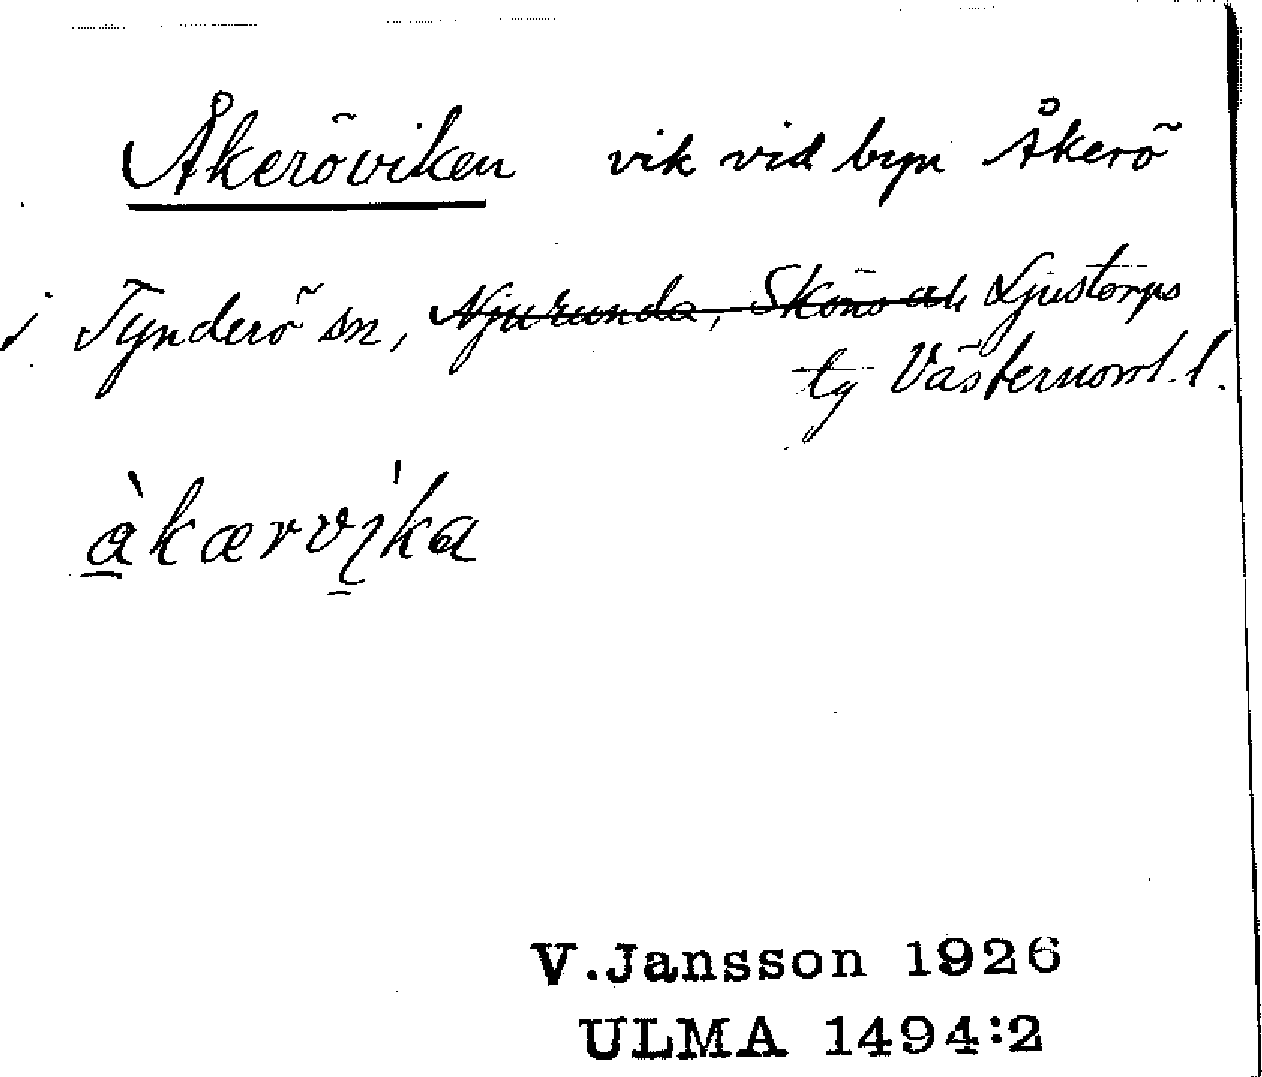 Åkeröviken vik vid byn Åkerö
i Tynderö sn, Njurunda, Sköns och Ljustorps
tg Västernorrl. l.
à̲kærvi̲̍ka
V.Jansson 1926
ULMA 1494:2